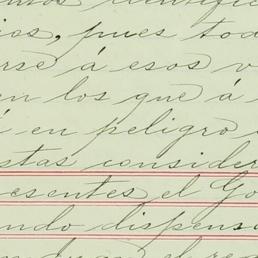 ios, pues tod
rse á esos v
en los que á
á en peligro
stas consider
esentes el Go
ndo dispensa